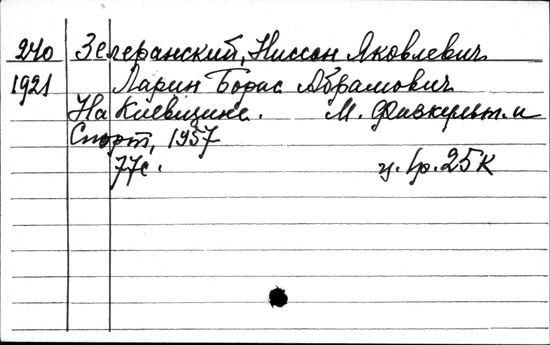 240 Зелеранский, Ниссон Яковлевич
1921 Ларин Борис Абрамович
На Киевщине. М. Физкульт. и
Спорт, 1957
77с. ц. 1р. 25к